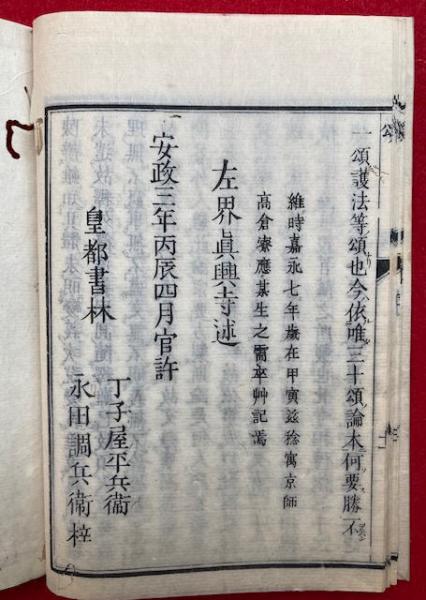 一頌護法等頌也今依唯三十頌論本何要勝不
維時嘉永七年歲在甲寅茲稔寓京師
高倉寮應某生之需卒艸記焉
左界眞興寺述
安政三年丙辰四月官許
皇都書林
丁子屋平兵衞
永田調兵衞梓